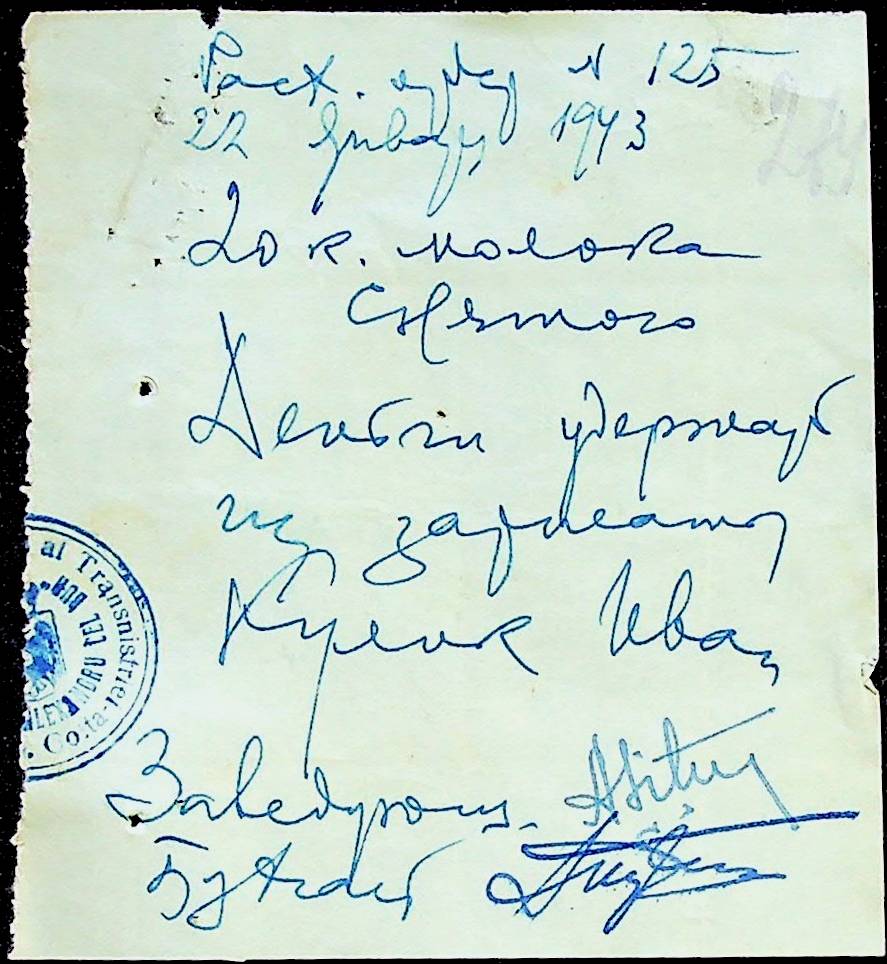 Расх. ордер N 125
22 января 1943
20 к. молока
снятого
Деньги удержать
из зарплаты
Кулик Иван
Заведующ.
Бухгалт
al Transnistriei
ALEXANDRU CEL BUN